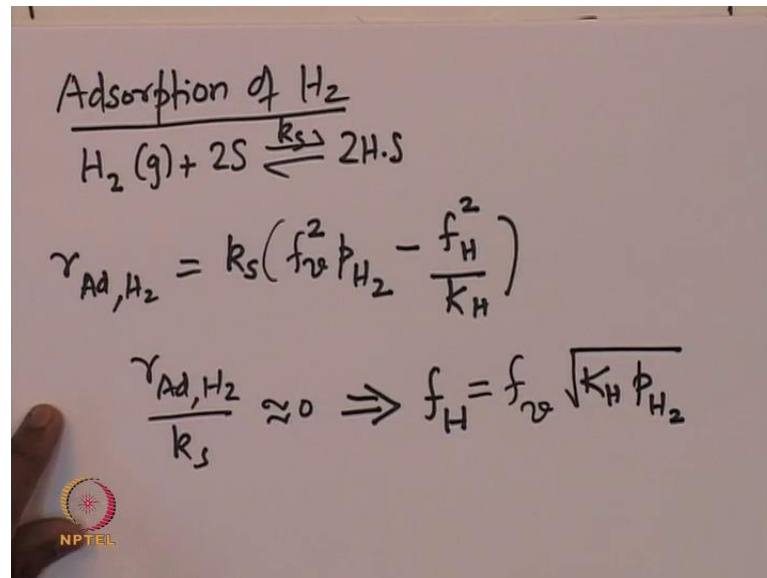 Adsorption of H₂
H₂(g) + 2S ⇌ 2H.S
k₅
r_Ad,H₂ = k₅(f_v² p_H₂ − f_H²/K_H)
r_Ad,H₂/k₅ ≈ 0 ⇒ f_H = f_v √(K_H p_H₂)
NPTEL